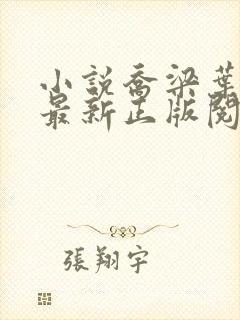 小說喬梁葉
最新正版閱
張翔宇